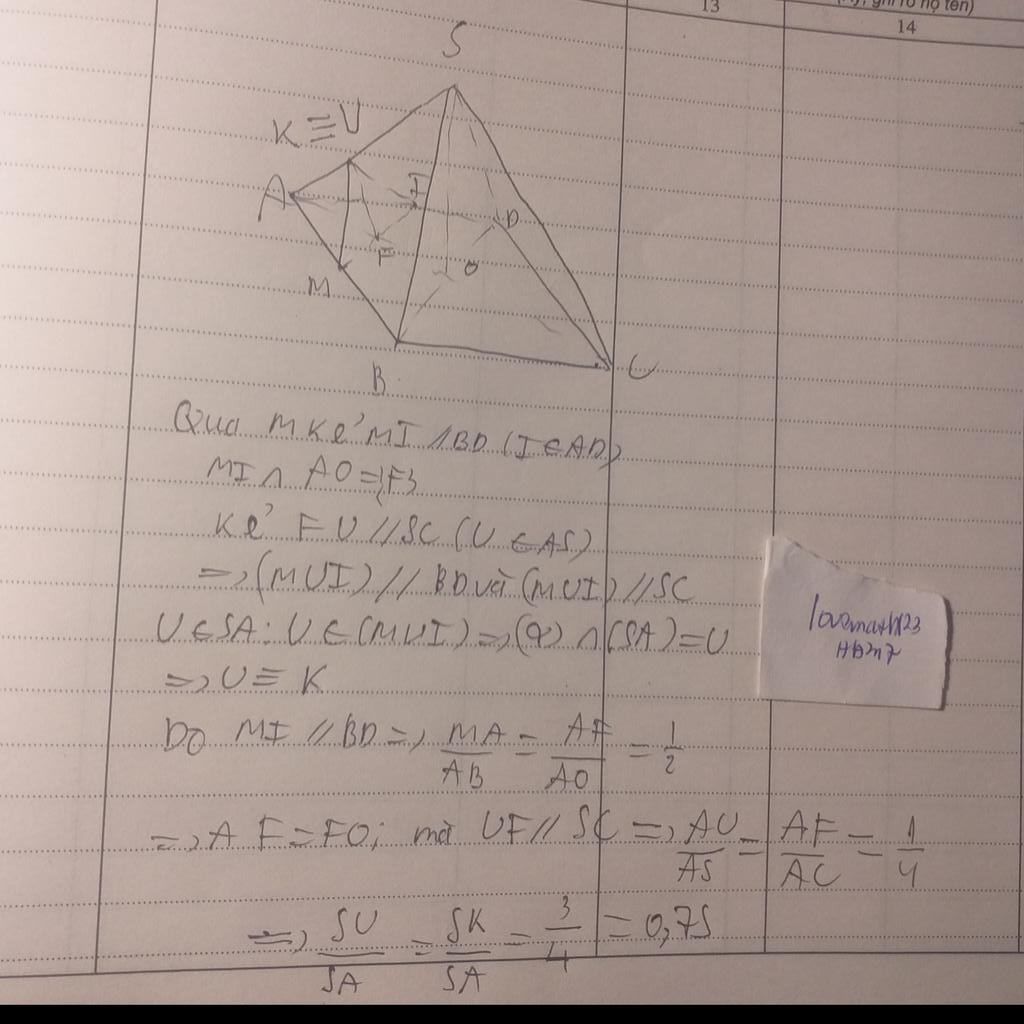 (Ký, ghi rõ họ tên)
13
14
S
K ≡ U
A
I
D
F
O
M
B
C
Qua M kẻ MI // BD (I ∈ AD)
MI ∩ AO = {F}
Kẻ FU // SC (U ∈ AS)
=> (MUI) // BD và (MUI) // SC
U ∈ SA: U ∈ (MUI) => (α) ∩ (SA) = U
=> U ≡ K
Do MI // BD => MA/AB = AF/AO = 1/2
=> AF = FO; mà UF // SC => AU/AS = AF/AC = 1/4
=> SU/SA = SK/SA = 3/4 = 0,75